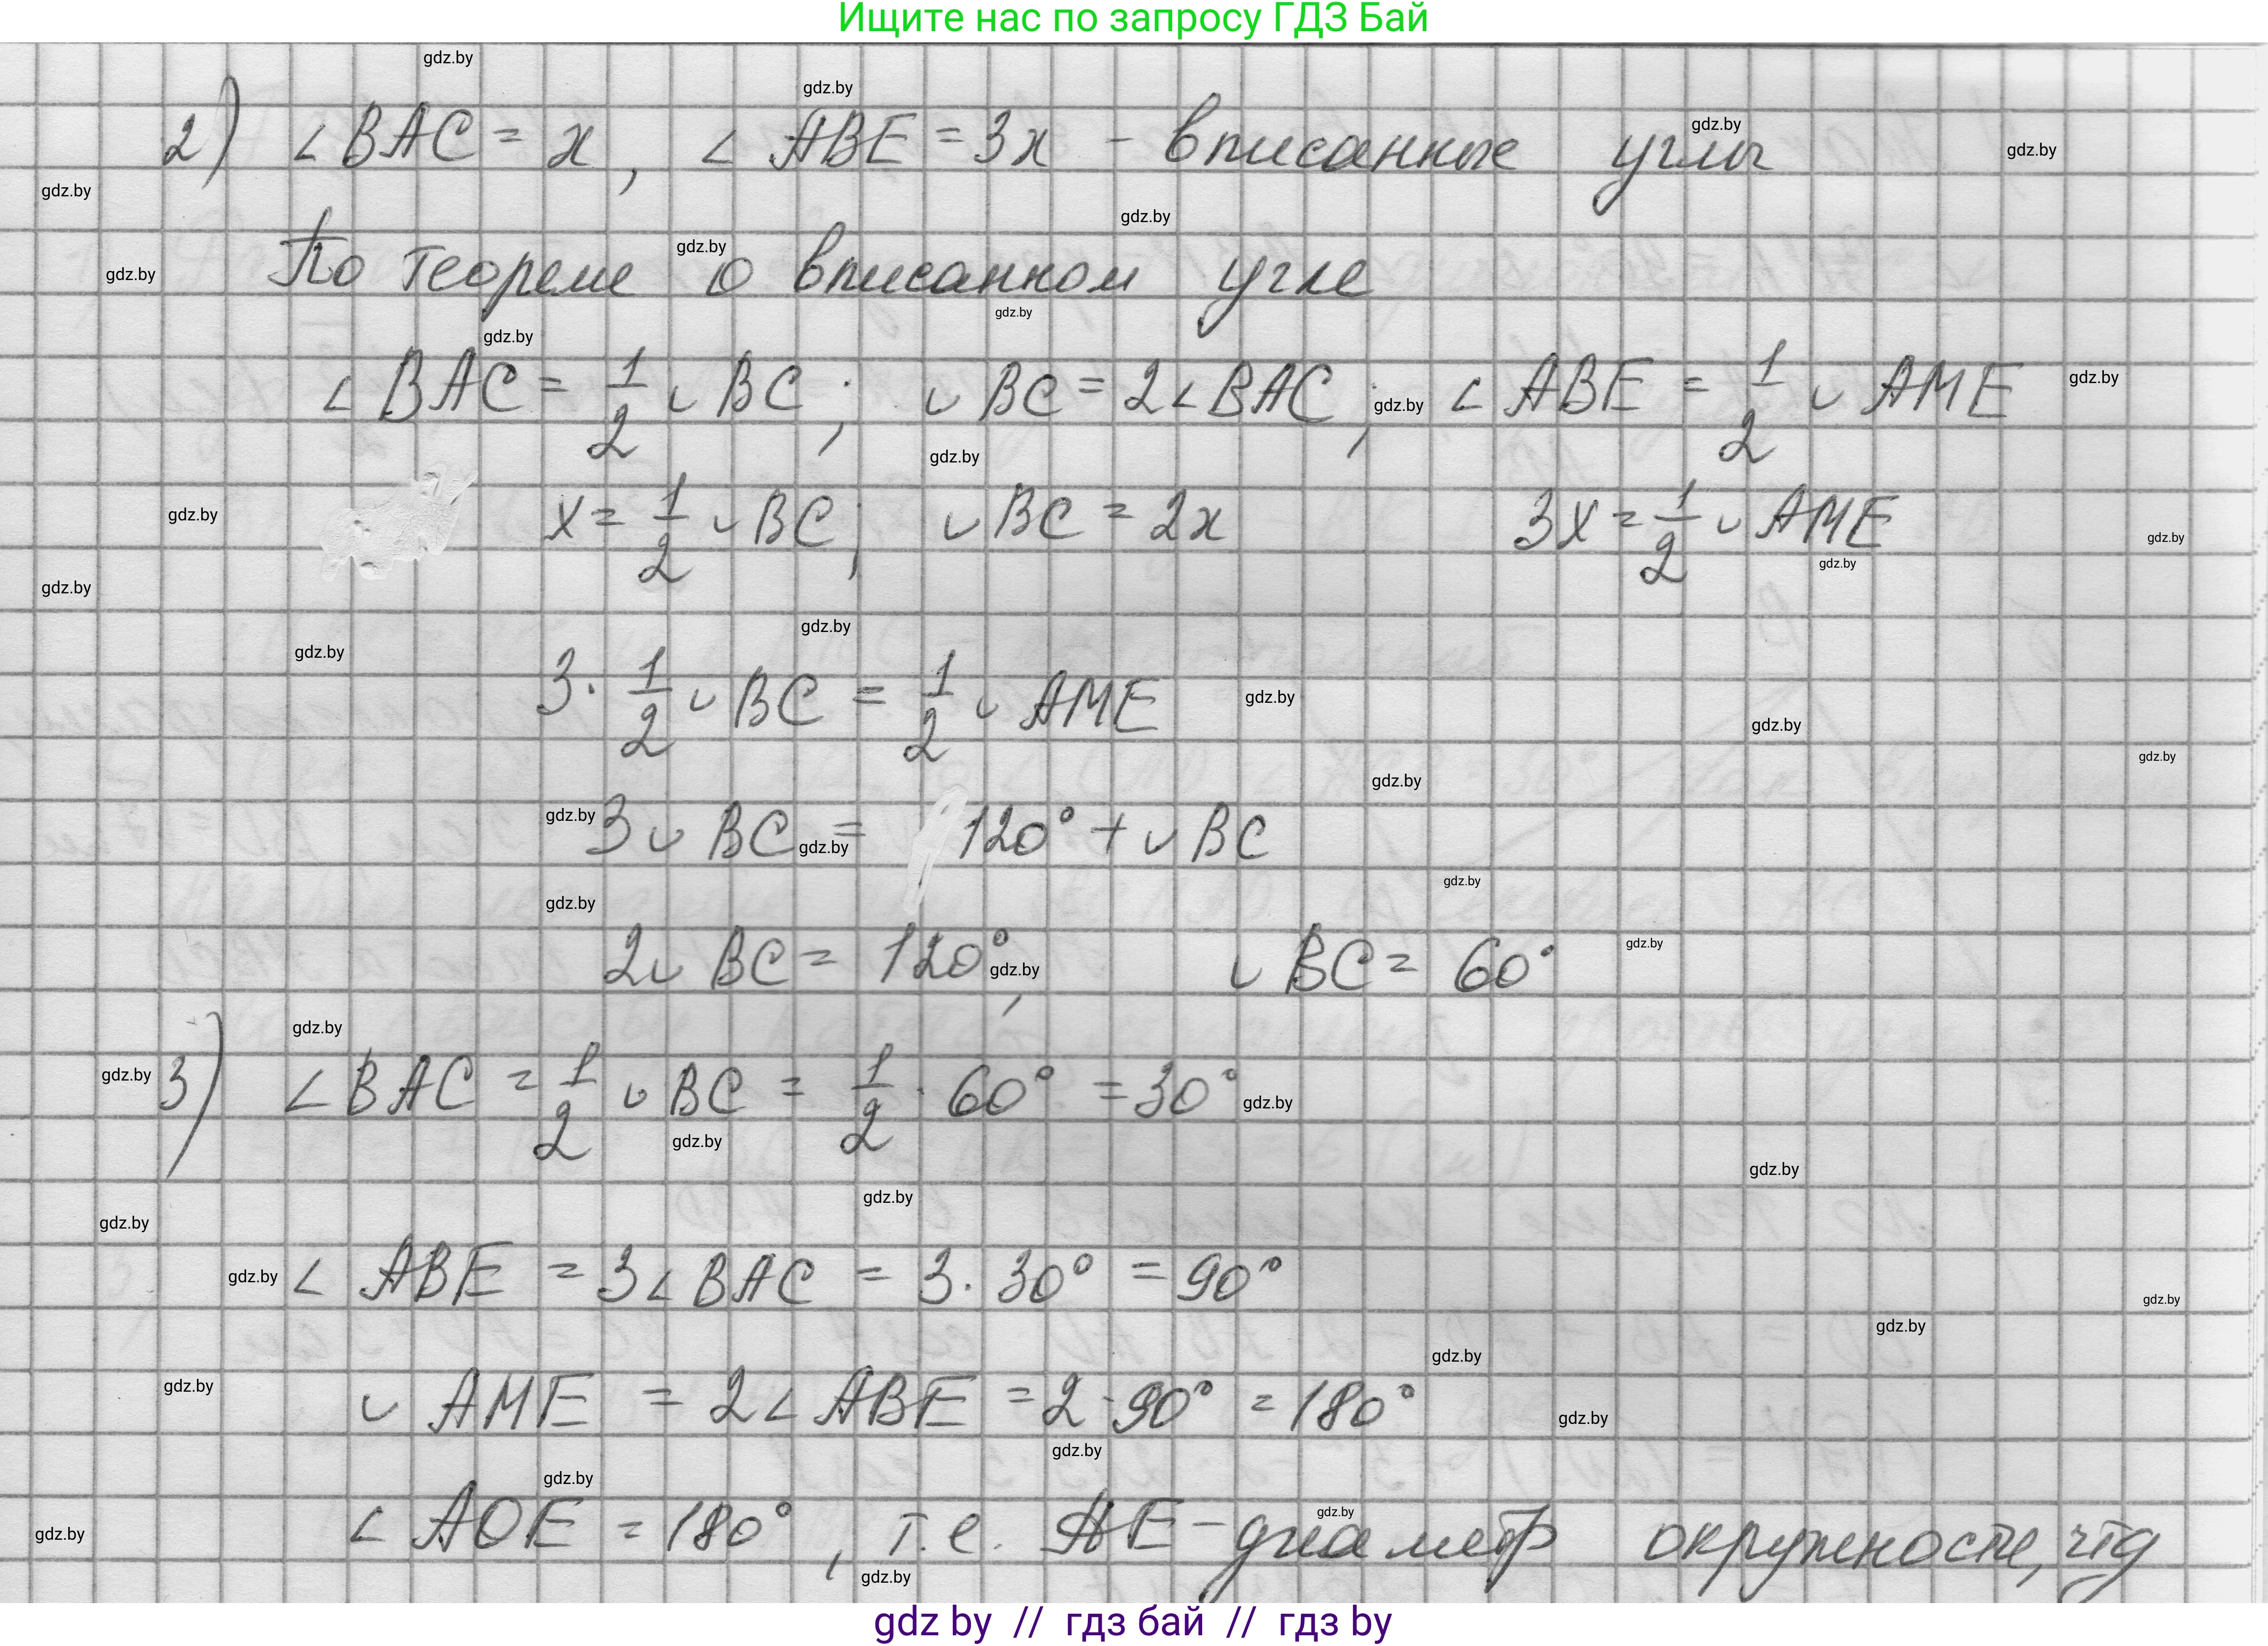 Ищите нас по запросу ГДЗ Бай
2) ∠BAC = x, ∠ABE = 3x - вписанные углы
По теореме о вписанном угле
∠BAC = 1/2 ◡BC; ◡BC = 2∠BAC; ∠ABE = 1/2 ◡AME
x = 1/2 ◡BC; ◡BC = 2x 3x = 1/2 ◡AME
3 · 1/2 ◡BC = 1/2 ◡AME
3◡BC = 120° + ◡BC
2◡BC = 120°, ◡BC = 60°
3) ∠BAC = 1/2 ◡BC = 1/2 · 60° = 30°
∠ABE = 3∠BAC = 3 · 30° = 90°
◡AME = 2∠ABE = 2 · 90° = 180°
∠AOE = 180°, т.е. AE - диаметр окружности, чтд
gdz by // гдз бай // гдз by